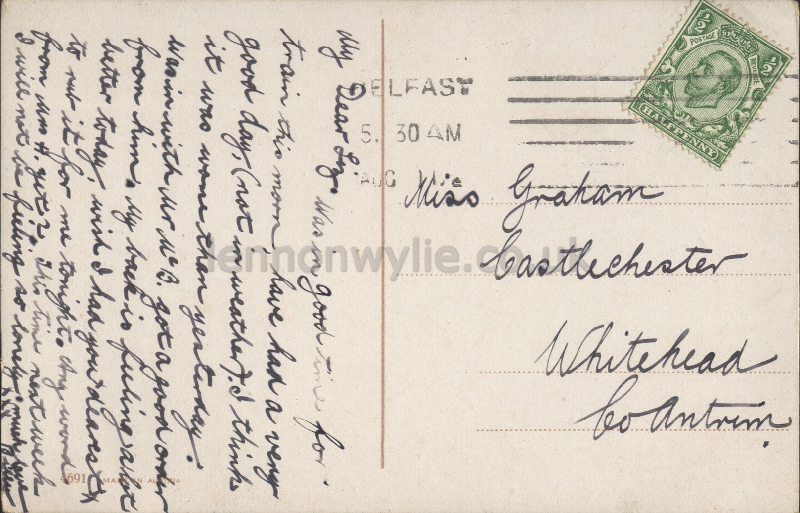 My Dear Liz. Was in good time for
train this morn, have had a very
good day, (not in weather). I think
it was worse than yesterday.
was in with Mr McB. got a good order
from him. My back is feeling a bit
better today, wish I had you dearest
to rub it for me tonight. Any word
from Mrs H. yet? This time next week
I will not be feeling so lonely. much love
Miss Graham
Castlechester
Whitehead
Co Antrim.
BELFAST
5. 30 AM
AUG
½ ½
POSTAGE REVENUE
HALFPENNY
lennonwylie.co.uk
4691 MADE IN AUSTRIA